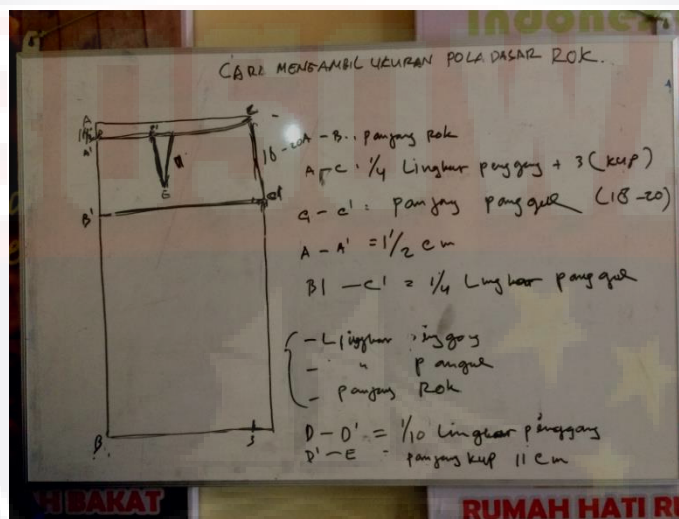 Indones
CARA MENGAMBIL UKURAN POLA DASAR ROK.
A
C
1½
A'
11
18-20
E
B'
C'
B
A - B : panjang Rok
A - C : 1/4 Lingkar pinggang + 3 (kup)
C - C' : panjang panggul (18-20)
A - A' = 1 1/2 cm
B' - C' = 1/4 Lingkar panggul
- Lingkar pinggang
- " panggul
- panjang Rok
D - D' = 1/10 Lingkar pinggang
D' - E = panjang kup 11 cm
H BAKAT
RUMAH HATI R